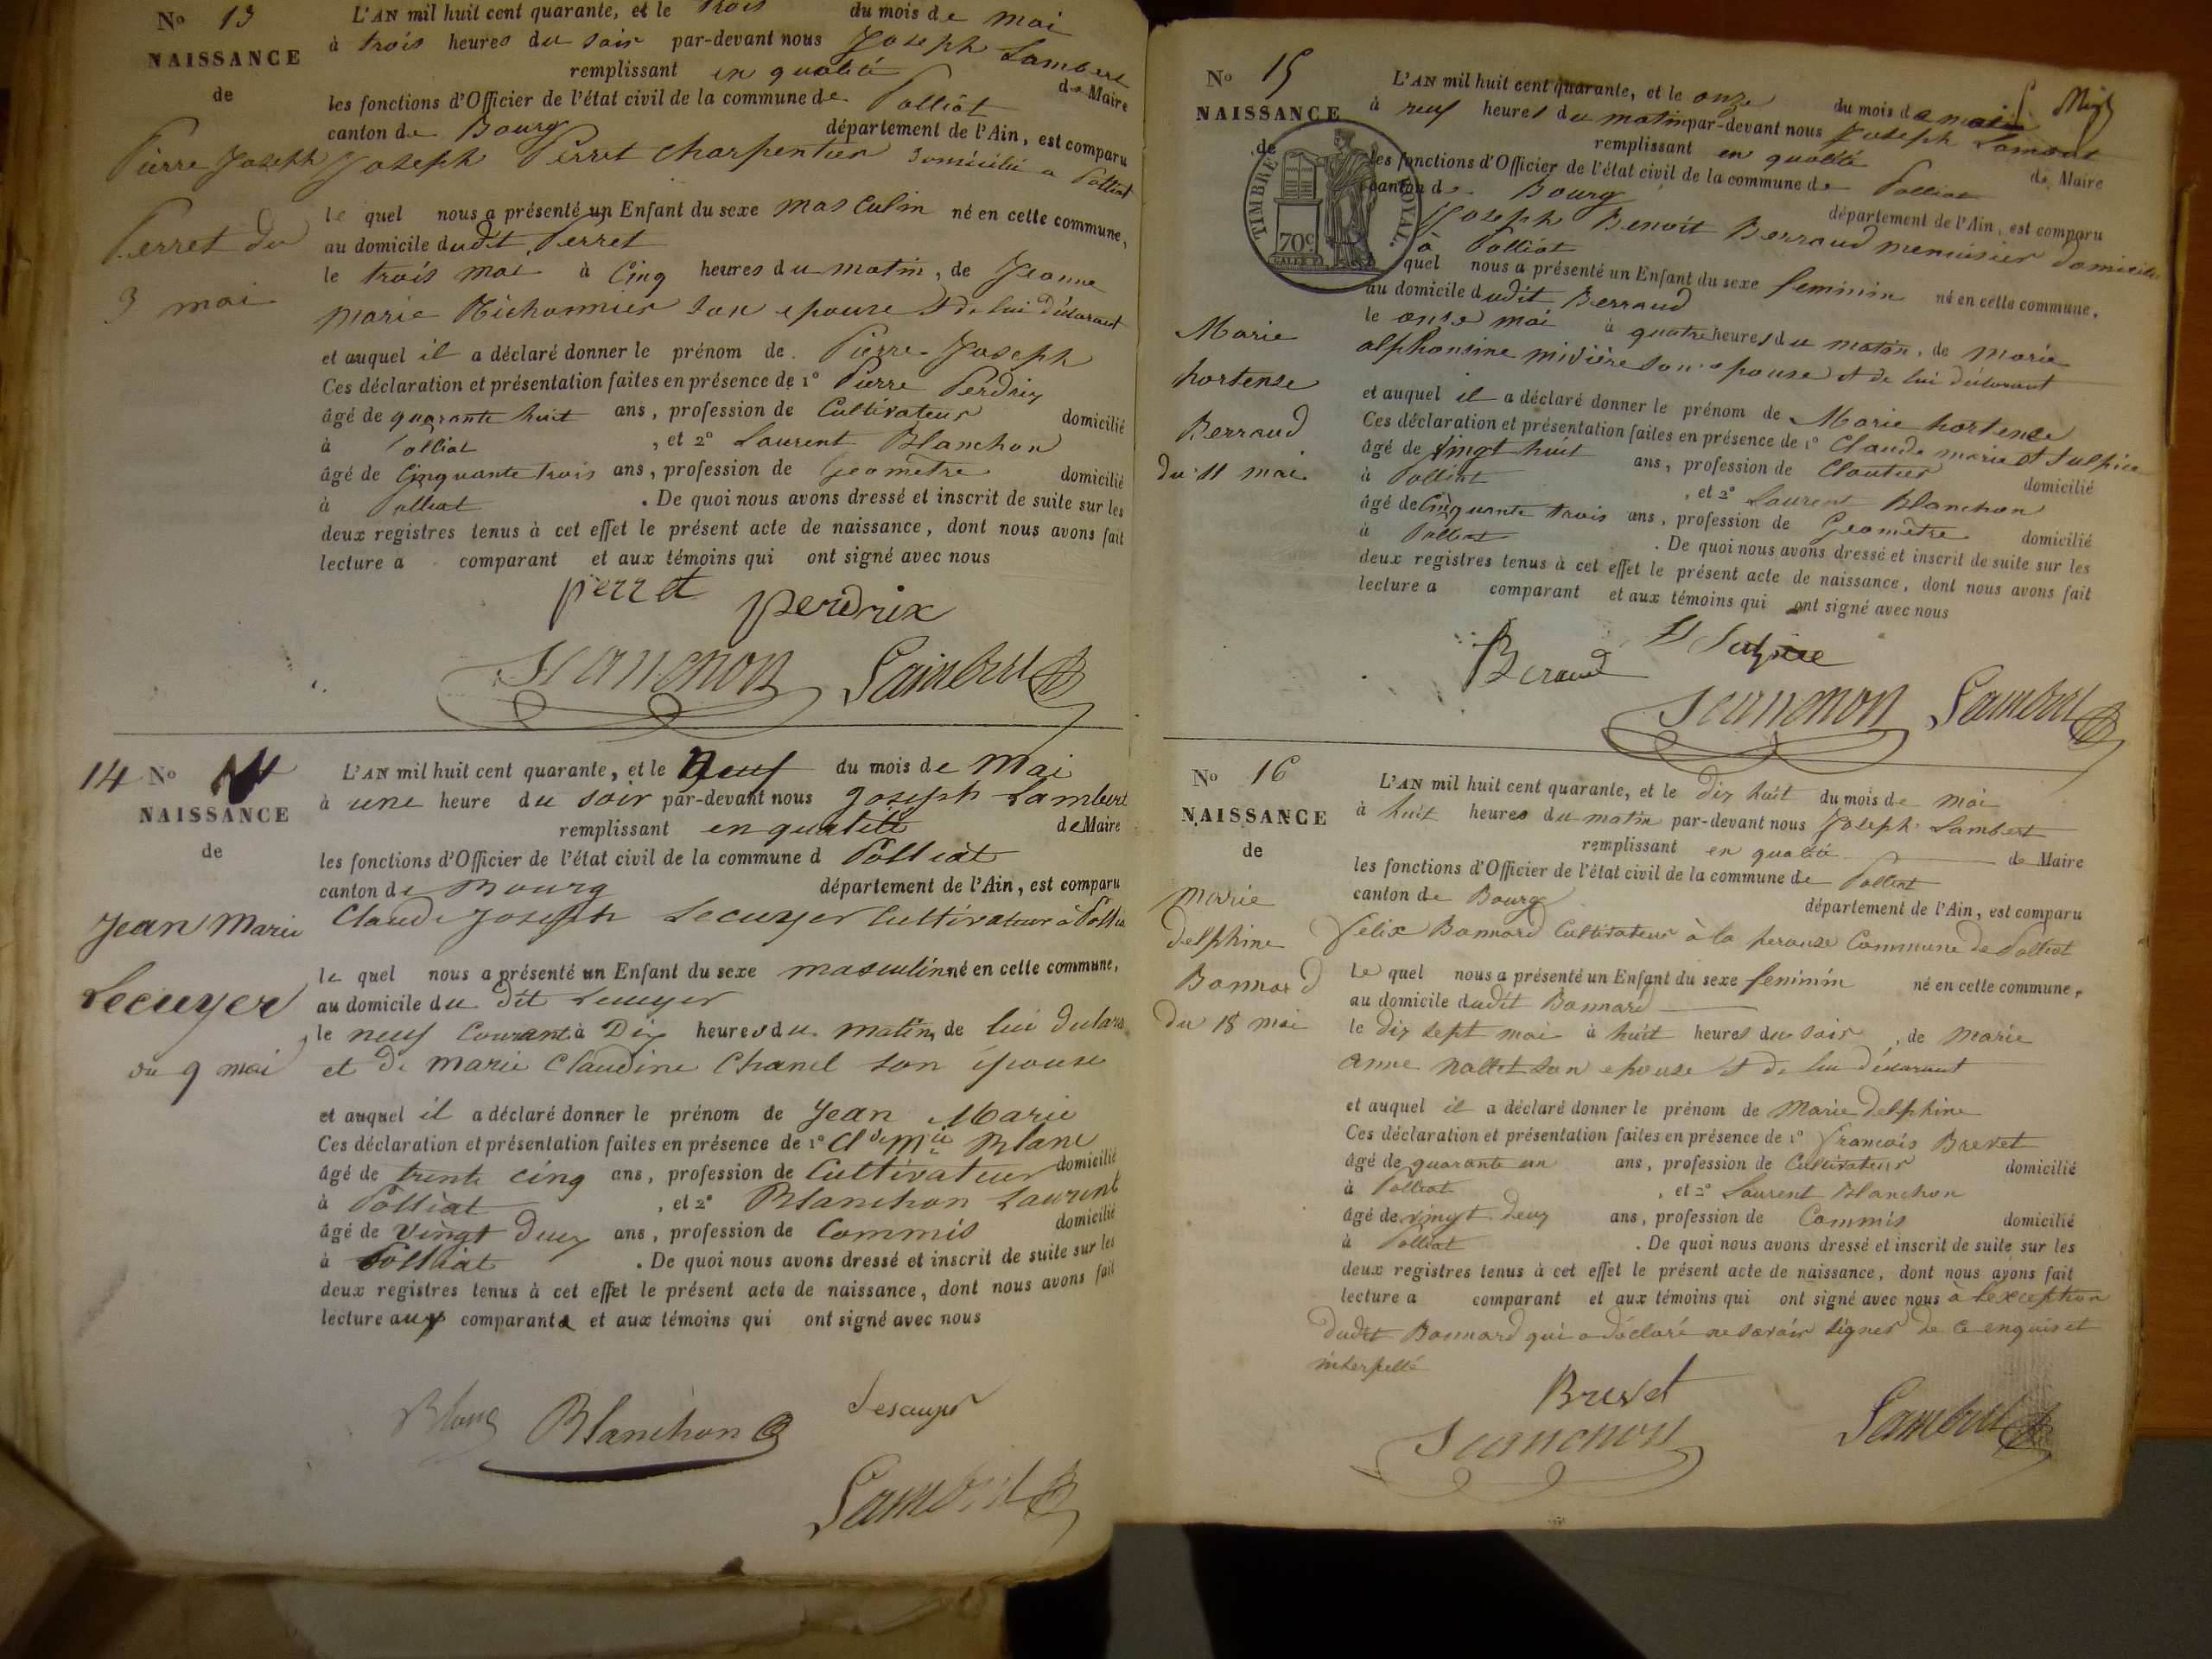 No 13
NAISSANCE
de
Pierre Joseph
Perret du
3 mai
L'AN mil huit cent quarante, et le trois du mois de mai
à trois heures du soir par-devant nous Joseph Lambert
remplissant en qualité de Maire
les fonctions d'Officier de l'état civil de la commune de Polliat
canton de Bourg département de l'Ain, est comparu
Joseph Perret charpentier domicilié a Polliat
le quel nous a présenté un Enfant du sexe masculin né en cette commune,
au domicile dudit Perret
le trois mai à Cinq heures du matin, de Jeanne
marie Michonnier son epouse et de lui déclarant
et auquel il a déclaré donner le prénom de Pierre Joseph
Ces déclaration et présentation faites en présence de 1º Pierre Perdrix
âgé de quarante huit ans, profession de Cultivateur domicilié
à Polliat, et 2º Laurent Blanchon
âgé de Cinquante trois ans, profession de Geometre domicilié
à Polliat. De quoi nous avons dressé et inscrit de suite sur les
deux registres tenus à cet effet le présent acte de naissance, dont nous avons fait
lecture a comparant et aux témoins qui ont signé avec nous
perret perdrix
Lambert
14 No 14
NAISSANCE
de
Jean Marie
Lecuyer
du 9 mai
L'AN mil huit cent quarante, et le Neuf du mois de Mai
à une heure du soir par-devant nous Joseph Lambert
remplissant en qualité de Maire
les fonctions d'Officier de l'état civil de la commune d Polliat
canton de Bourg département de l'Ain, est comparu
Claude Joseph Lecuyer Cultivateur à Pollia
le quel nous a présenté un Enfant du sexe masculin né en cette commune,
au domicile du dit Lecuyer
le neuf Courant à Dix heures du matin, de lui declara
et de marie Claudine Chanel son épouse
et auquel il a déclaré donner le prénom de Jean Marie
Ces déclaration et présentation faites en présence de 1º Cl de M ie Blanc
âgé de trente cinq ans, profession de Cultivateur domicilié
à Polliat, et 2º Blanchon Laurent
âgé de Vingt deux ans, profession de Commis domicilié
à Polliat. De quoi nous avons dressé et inscrit de suite sur les
deux registres tenus à cet effet le présent acte de naissance, dont nous avons fait
lecture aux comparants et aux témoins qui ont signé avec nous
Blanc Blanchon
Lambert
No 15
NAISSANCE
de
TIMBRE ROYAL.
70c
Marie
hortense
Berraud
du 11 mai
L'AN mil huit cent quarante, et le onze du mois de mai
à neuf heures du matin par-devant nous Joseph Lambert
remplissant en qualité de Maire
les fonctions d'Officier de l'état civil de la commune de Polliat
canton de Bourg département de l'Ain, est comparu
Joseph Benoit Berraud menuisier domicilié
à Polliat
quel nous a présenté un Enfant du sexe feminin né en cette commune,
au domicile dudit Berraud
le onze mai à quatre heures du matin, de marie
alphonsine mivière son epouse et de lui déclarant
et auquel il a déclaré donner le prénom de Marie hortense
Ces déclaration et présentation faites en présence de 1º Claude marie St Sulpice
âgé de vingt huit ans, profession de Cloutier domicilié
à Polliat, et 2º Laurent Blanchon
âgé de Cinquante trois ans, profession de Geometre domicilié
à Polliat. De quoi nous avons dressé et inscrit de suite sur les
deux registres tenus à cet effet le présent acte de naissance, dont nous avons fait
lecture a comparant et aux témoins qui ont signé avec nous
Beraud St Sulpice
Lambert
No 16
NAISSANCE
de
Marie
delphine
Bonnard
du 18 mai
L'AN mil huit cent quarante, et le dix huit du mois de mai
à huit heures du matin par-devant nous Joseph Lambert
remplissant en qualité de Maire
les fonctions d'Officier de l'état civil de la commune de Polliat
canton de Bourg département de l'Ain, est comparu
felix Bonnard Cultivateur à la perouse Commune de Polliat
Le quel nous a présenté un Enfant du sexe feminin né en cette commune,
au domicile dudit Bonnard
le dix sept mai à huit heures du soir, de marie
anne Nallet son epouse et de lui déclarant
et auquel il a déclaré donner le prénom de Marie delphine
Ces déclaration et présentation faites en présence de 1º francois Brevet
âgé de quarante un ans, profession de Cultivateur domicilié
à Polliat, et 2º Laurent Blanchon
âgé de vingt deux ans, profession de Commis domicilié
à Polliat. De quoi nous avons dressé et inscrit de suite sur les
deux registres tenus à cet effet le présent acte de naissance, dont nous avons fait
lecture a comparant et aux témoins qui ont signé avec nous à l'exception
dudit Bonnard qui a déclaré ne savoir signer de ce enquis et
interpellé
Brevet
Lambert